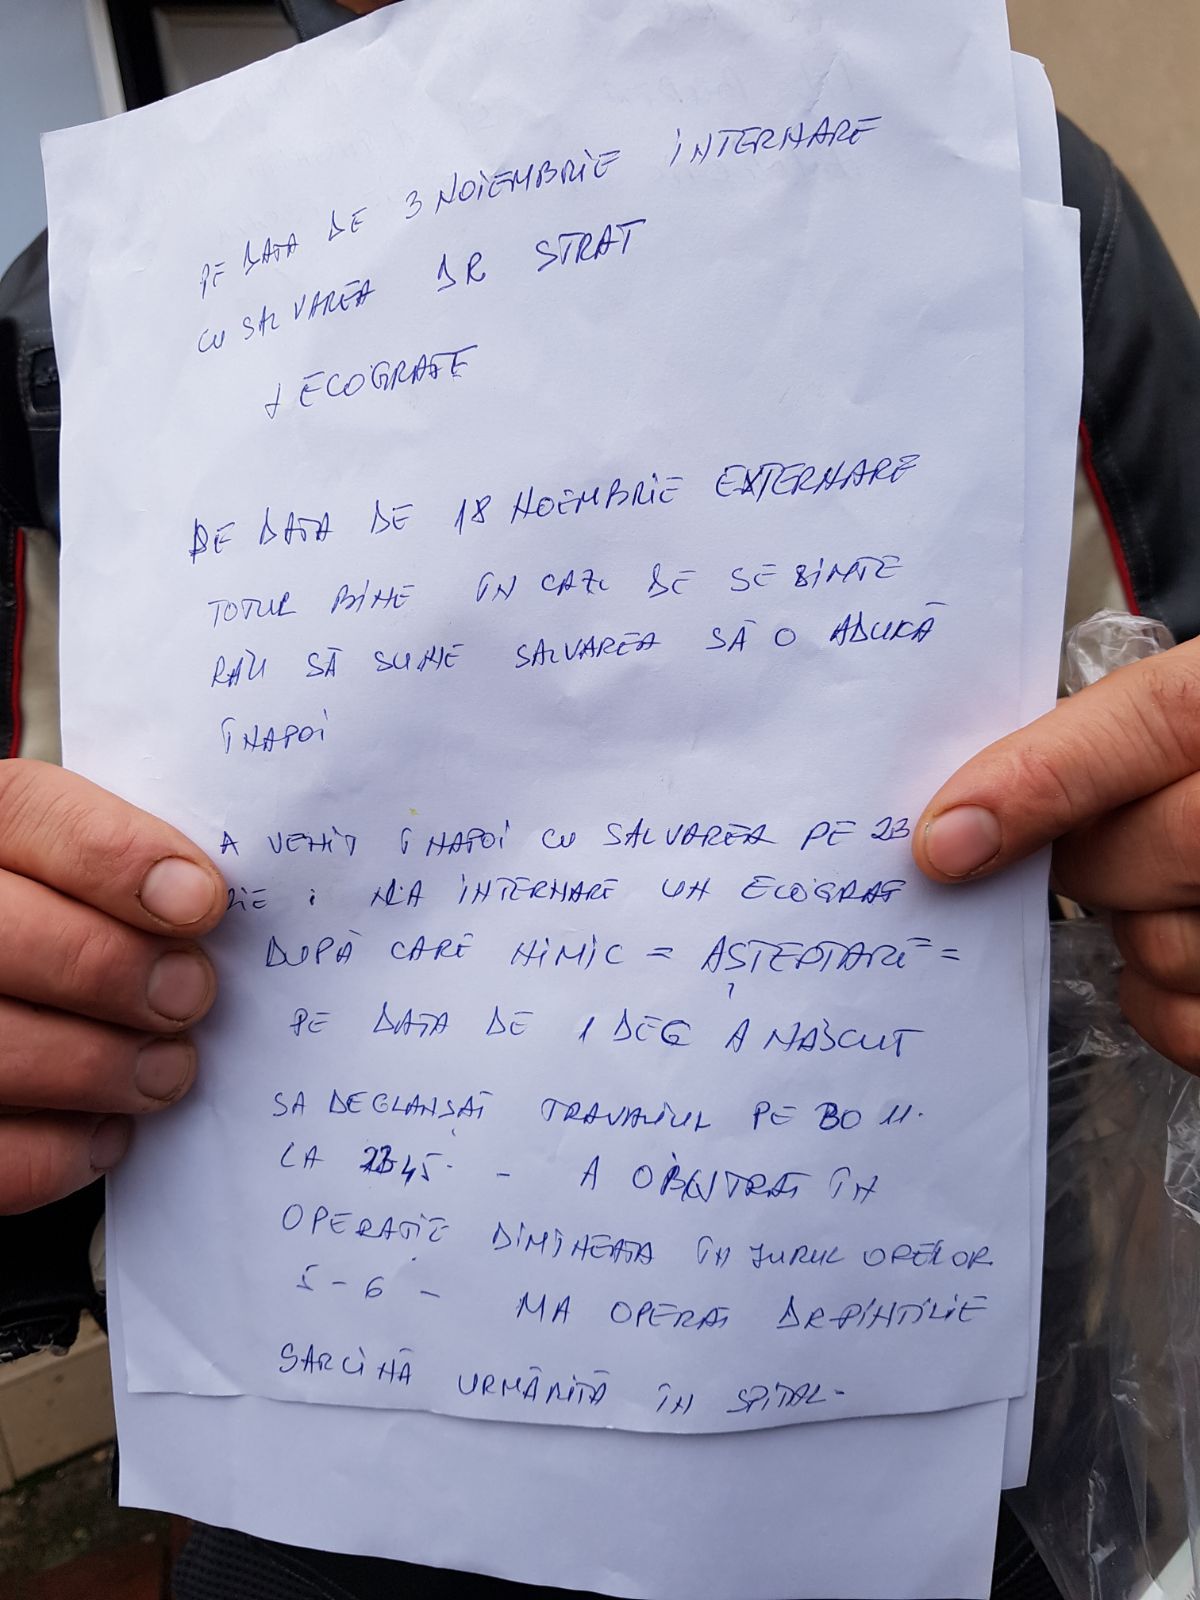 PE DATA DE 3 NOIEMBRIE INTERNARE
CU SALVAREA DR STRAT
+ ECOGRAFE
PE DATA DE 18 NOEMBRIE EXTERNARE
TOTUL BINE ÎN CAZL DE SE SIMTE
RĂU SĂ SUNE SALVAREA SĂ O ADUKĂ
ÎNAPOI
A VENIT ÎNAPOI CU SALVAREA PE 23
RIE INTERNARE UN ECOGRAF
DUPĂ CARE NIMIC = AȘTEPTARE =
PE DATA DE 1 DEC A NĂSCUT
SA DECLANȘAT TRAVALIUL PE 30 11.
LA 2345 - A INTRAT ÎN
OPERATIE DIMINEATA ÎN JURUL ORELOR
5-6 - MA OPERAT DR PINTILIE
SARCINĂ URMĂRITĂ ÎN SPITAL-